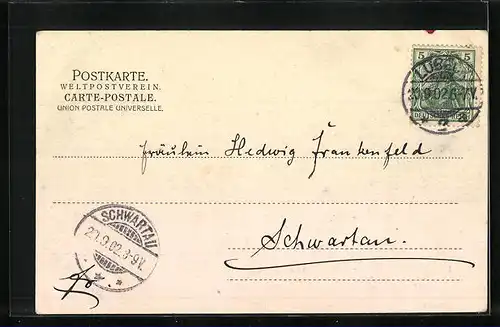 POSTKARTE.
WELTPOSTVEREIN.
CARTE-POSTALE.
UNION POSTALE UNIVERSELLE.
5 5
LÜBECK
9.02.6-7V.
2
Fräulein Hedwig Frankenfeld
Schwartau.
SCHWARTAU
20.9.02.8-9V.